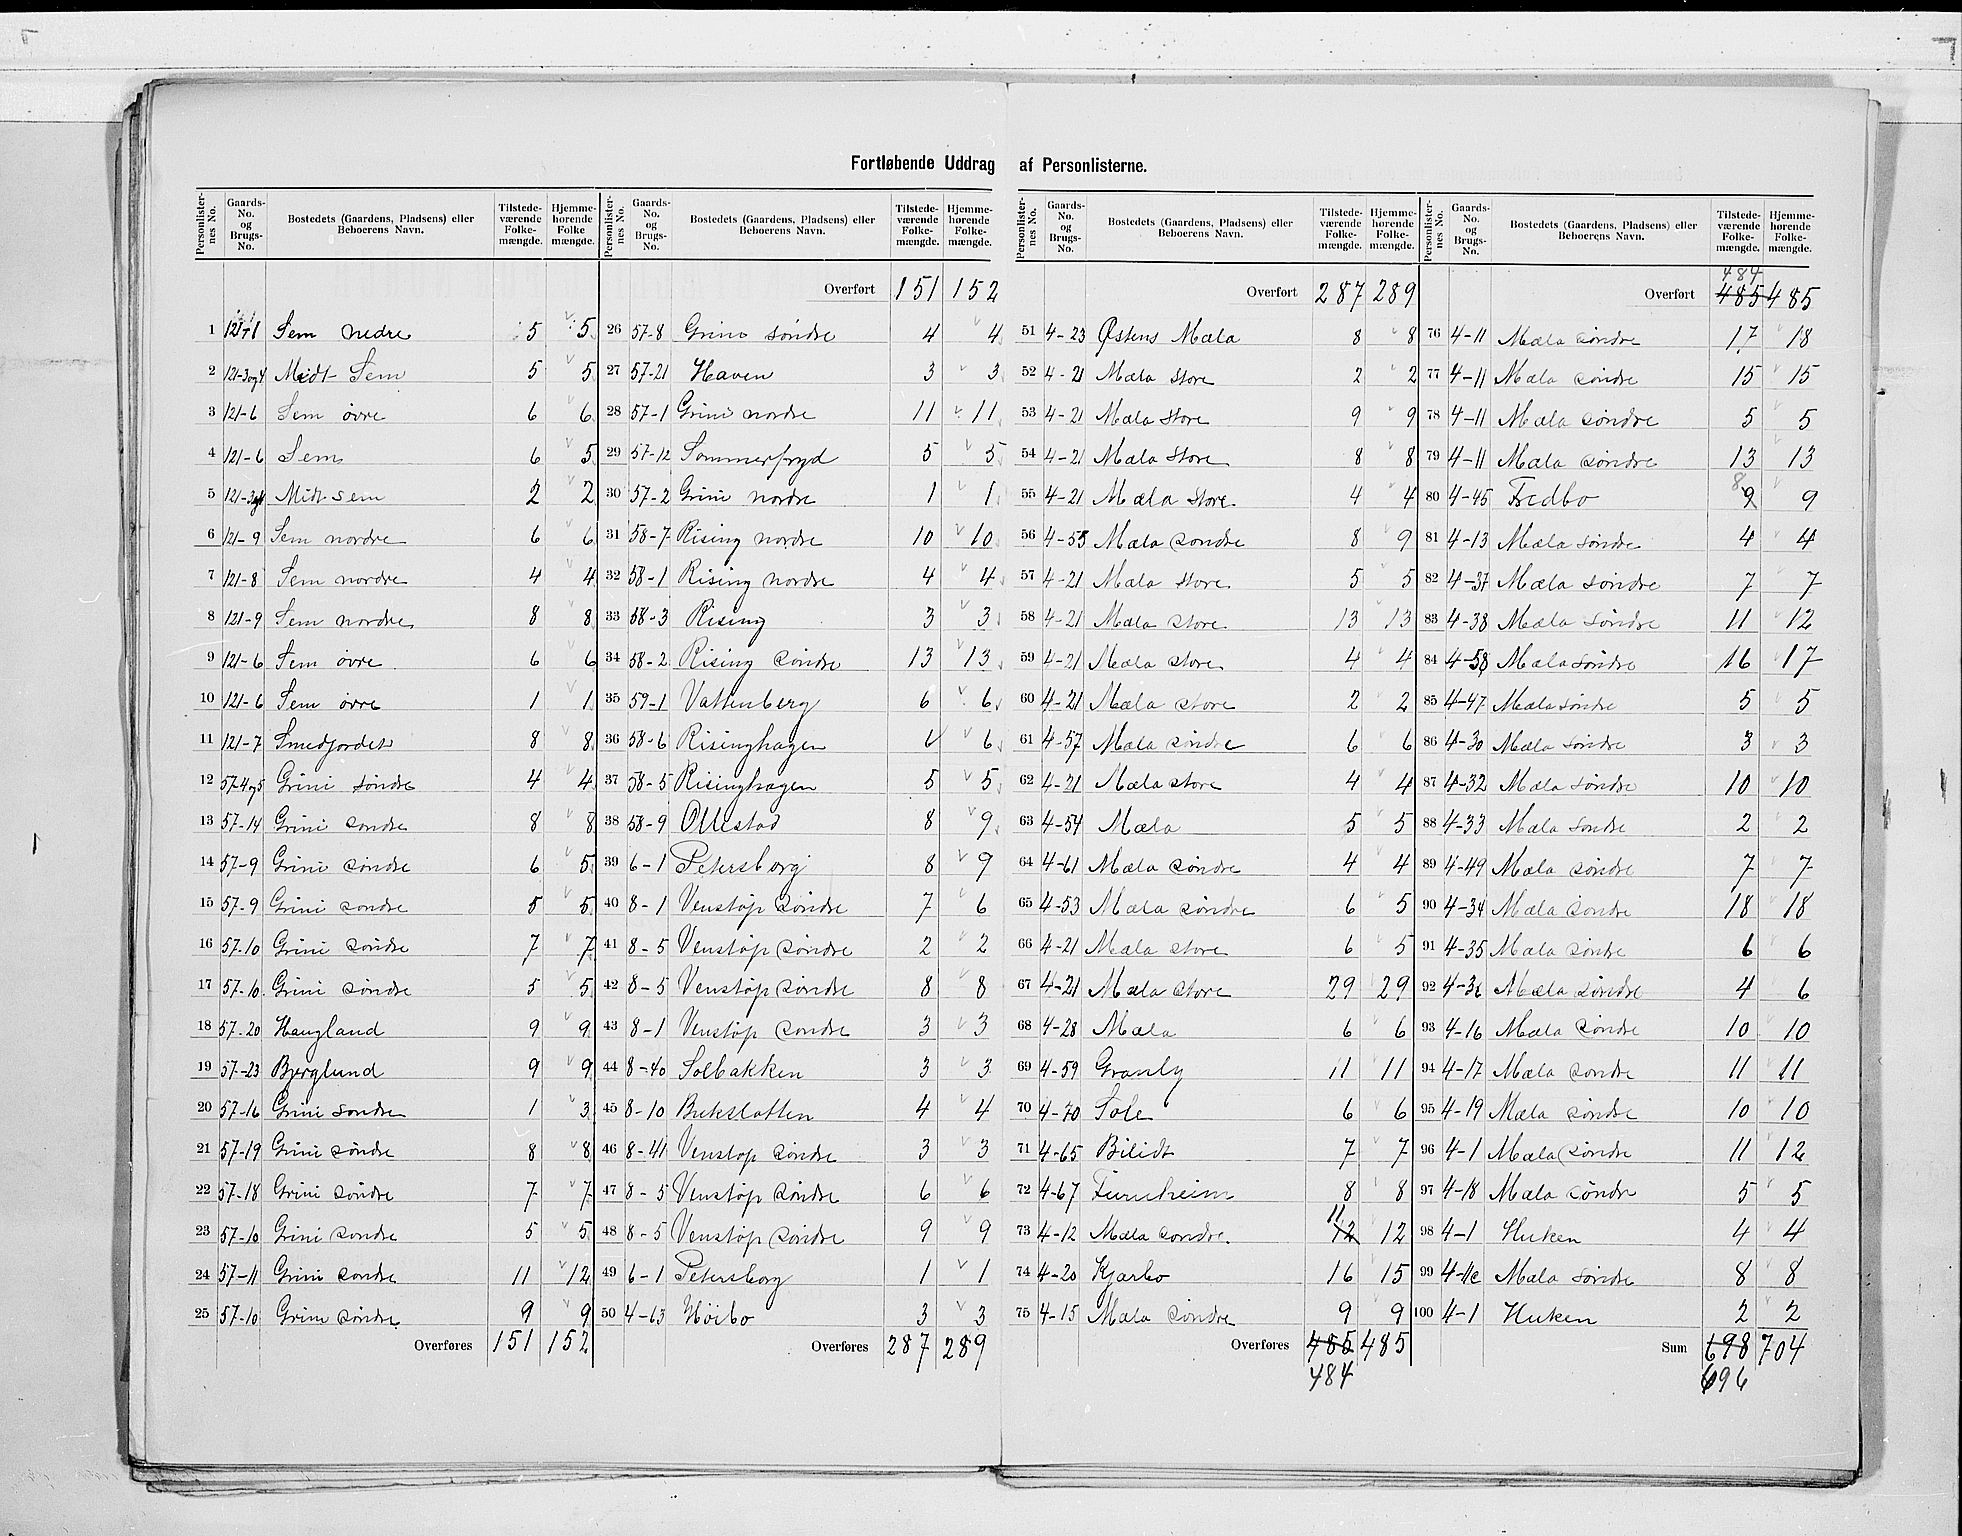 Fortløbende Uddrag af Personlisterne.
Personlister-nes No. Gaards-No. og Brugs-No. Bostedets (Gaardens, Pladsens) eller Beboerens Navn. Tilstede-værende Folke-mængde. Hjemme-hørende Folke mængde.
1 121-1 Sem nedre 5 5
2 121-3og4 Midt-Sem 5 5
3 121-6 Sem øvre 6 6
4 121-6 Sem 6 5
5 121-3og4 Midt sem 2 2
6 121-9 Sem nordre 6 6
7 121-8 Sem nordre 4 4
8 121-9 Sem nordre 8 8
9 121-6 Sem øvre 6 6
10 121-6 Sem øvre 1 1
11 121-7 Smedjordet 8 8
12 57-4og5 Grini søndre 4 4
13 57-14 Grini søndre 8 8
14 57-9 Grini søndre 6 5
15 57-9 Grini søndre 5 5
16 57-10 Grini søndre 7 7
17 57-10 Grini søndre 5 5
18 57-20 Haugland 9 9
19 57-23 Bjerglund 9 9
20 57-16 Grini søndre 1 3
21 57-19 Grini søndre 8 8
22 57-18 Grini søndre 7 7
23 57-10 Grini søndre 5 5
24 57-11 Grini søndre 11 12
25 57-10 Grini søndre 9 9
Overføres 151 152
Personlister-nes No. Gaards-No. og Brugs-No. Bostedets (Gaardens, Pladsens) eller Beboerens Navn. Tilstede-værende Folke-mængde. Hjemme-hørende Folke-mængde.
Overført 151 152
26 57-8 Grini søndre 4 4
27 57-21 Haven 3 3
28 57-1 Grini nordre 11 11
29 57-12 Sommerfryd 5 5
30 57-2 Grini nordre 1 1
31 58-7 Rising nordre 10 10
32 58-1 Rising nordre 4 4
33 58-3 Rising 3 3
34 58-2 Rising søndre 13 13
35 59-1 Vattenberg 6 6
36 58-6 Risinghagen 6 6
37 58-5 Risinghagen 5 5
38 58-9 Ollestad 8 9
39 6-1 Petersborg 8 9
40 8-1 Venstøp søndre 7 6
41 8-5 Venstøp søndre 2 2
42 8-5 Venstøp søndre 8 8
43 8-1 Venstøp søndre 3 3
44 8-40 Solbakken 3 3
45 8-10 Buksletten 4 4
46 8-41 Venstøp søndre 3 3
47 8-5 Venstøp søndre 6 6
48 8-5 Venstøp søndre 9 9
49 6-1 Petersborg 1 1
50 4-63 Høibo 3 3
Overføres 287 289
Personlister-nes No. Gaards-No. og Brugs-No. Bostedets (Gaardens, Pladsens) eller Beboerens Navn. Tilstede-værende Folke-mængde. Hjemme-hørende Folke-mængde.
Overført 287 289
51 4-23 Østens Mæla 8 8
52 4-21 Mæla store 2 2
53 4-21 Mæla store 9 9
54 4-21 Mæla store 8 8
55 4-21 Mæla store 4 4
56 4-53 Mæla søndre 8 9
57 4-21 Mæla store 5 5
58 4-21 Mæla store 13 13
59 4-21 Mæla store 4 4
60 4-21 Mæla store 2 2
61 4-57 Mæla søndre 6 6
62 4-21 Mæla store 4 4
63 4-54 Mæla 5 5
64 4-61 Mæla søndre 4 4
65 4-53 Mæla søndre 6 5
66 4-21 Mæla store 6 5
67 4-21 Mæla store 29 29
68 4-28 Mæla 6 6
69 4-59 Granly 11 11
70 4-70 Sole 6 6
71 4-65 Bilidt 7 7
72 4-67 Furuheim 8 8
73 4-12 Mæla søndre 12 11 12
74 4-20 Kjærbo 16 15
75 4-15 Mæla søndre 9 9
Overføres 485 485
484
Personlister-nes No. Gaards-No. og Brugs-No. Bostedets (Gaardens, Pladsens) eller Beboerens Navn. Tilstede-værende Folke-mængde. Hjemme-hørende Folke-mængde.
484
Overført 485 485
76 4-11 Mæla søndre 17 18
77 4-11 Mæla søndre 15 15
78 4-11 Mæla søndre 5 5
79 4-11 Mæla søndre 13 13
80 4-45 Fredbo 9 8 9
81 4-13 Mæla søndre 4 4
82 4-37 Mæla søndre 7 7
83 4-38 Mæla søndre 11 12
84 4-58 Mæla søndre 16 17
85 4-47 Mæla søndre 5 5
86 4-30 Mæla søndre 3 3
87 4-32 Mæla søndre 10 10
88 4-33 Mæla søndre 2 2
89 4-49 Mæla søndre 7 7
90 4-34 Mæla søndre 18 18
91 4-35 Mæla søndre 6 6
92 4-36 Mæla søndre 4 6
93 4-16 Mæla søndre 10 10
94 4-17 Mæla søndre 11 11
95 4-19 Mæla søndre 10 10
96 4-1 Mæla søndre 11 12
97 4-18 Mæla søndre 5 5
98 4-1 Huken 4 4
99 Mæla søndre 8 8
100 4-1 Huken 2 2
Sum 698 704
696